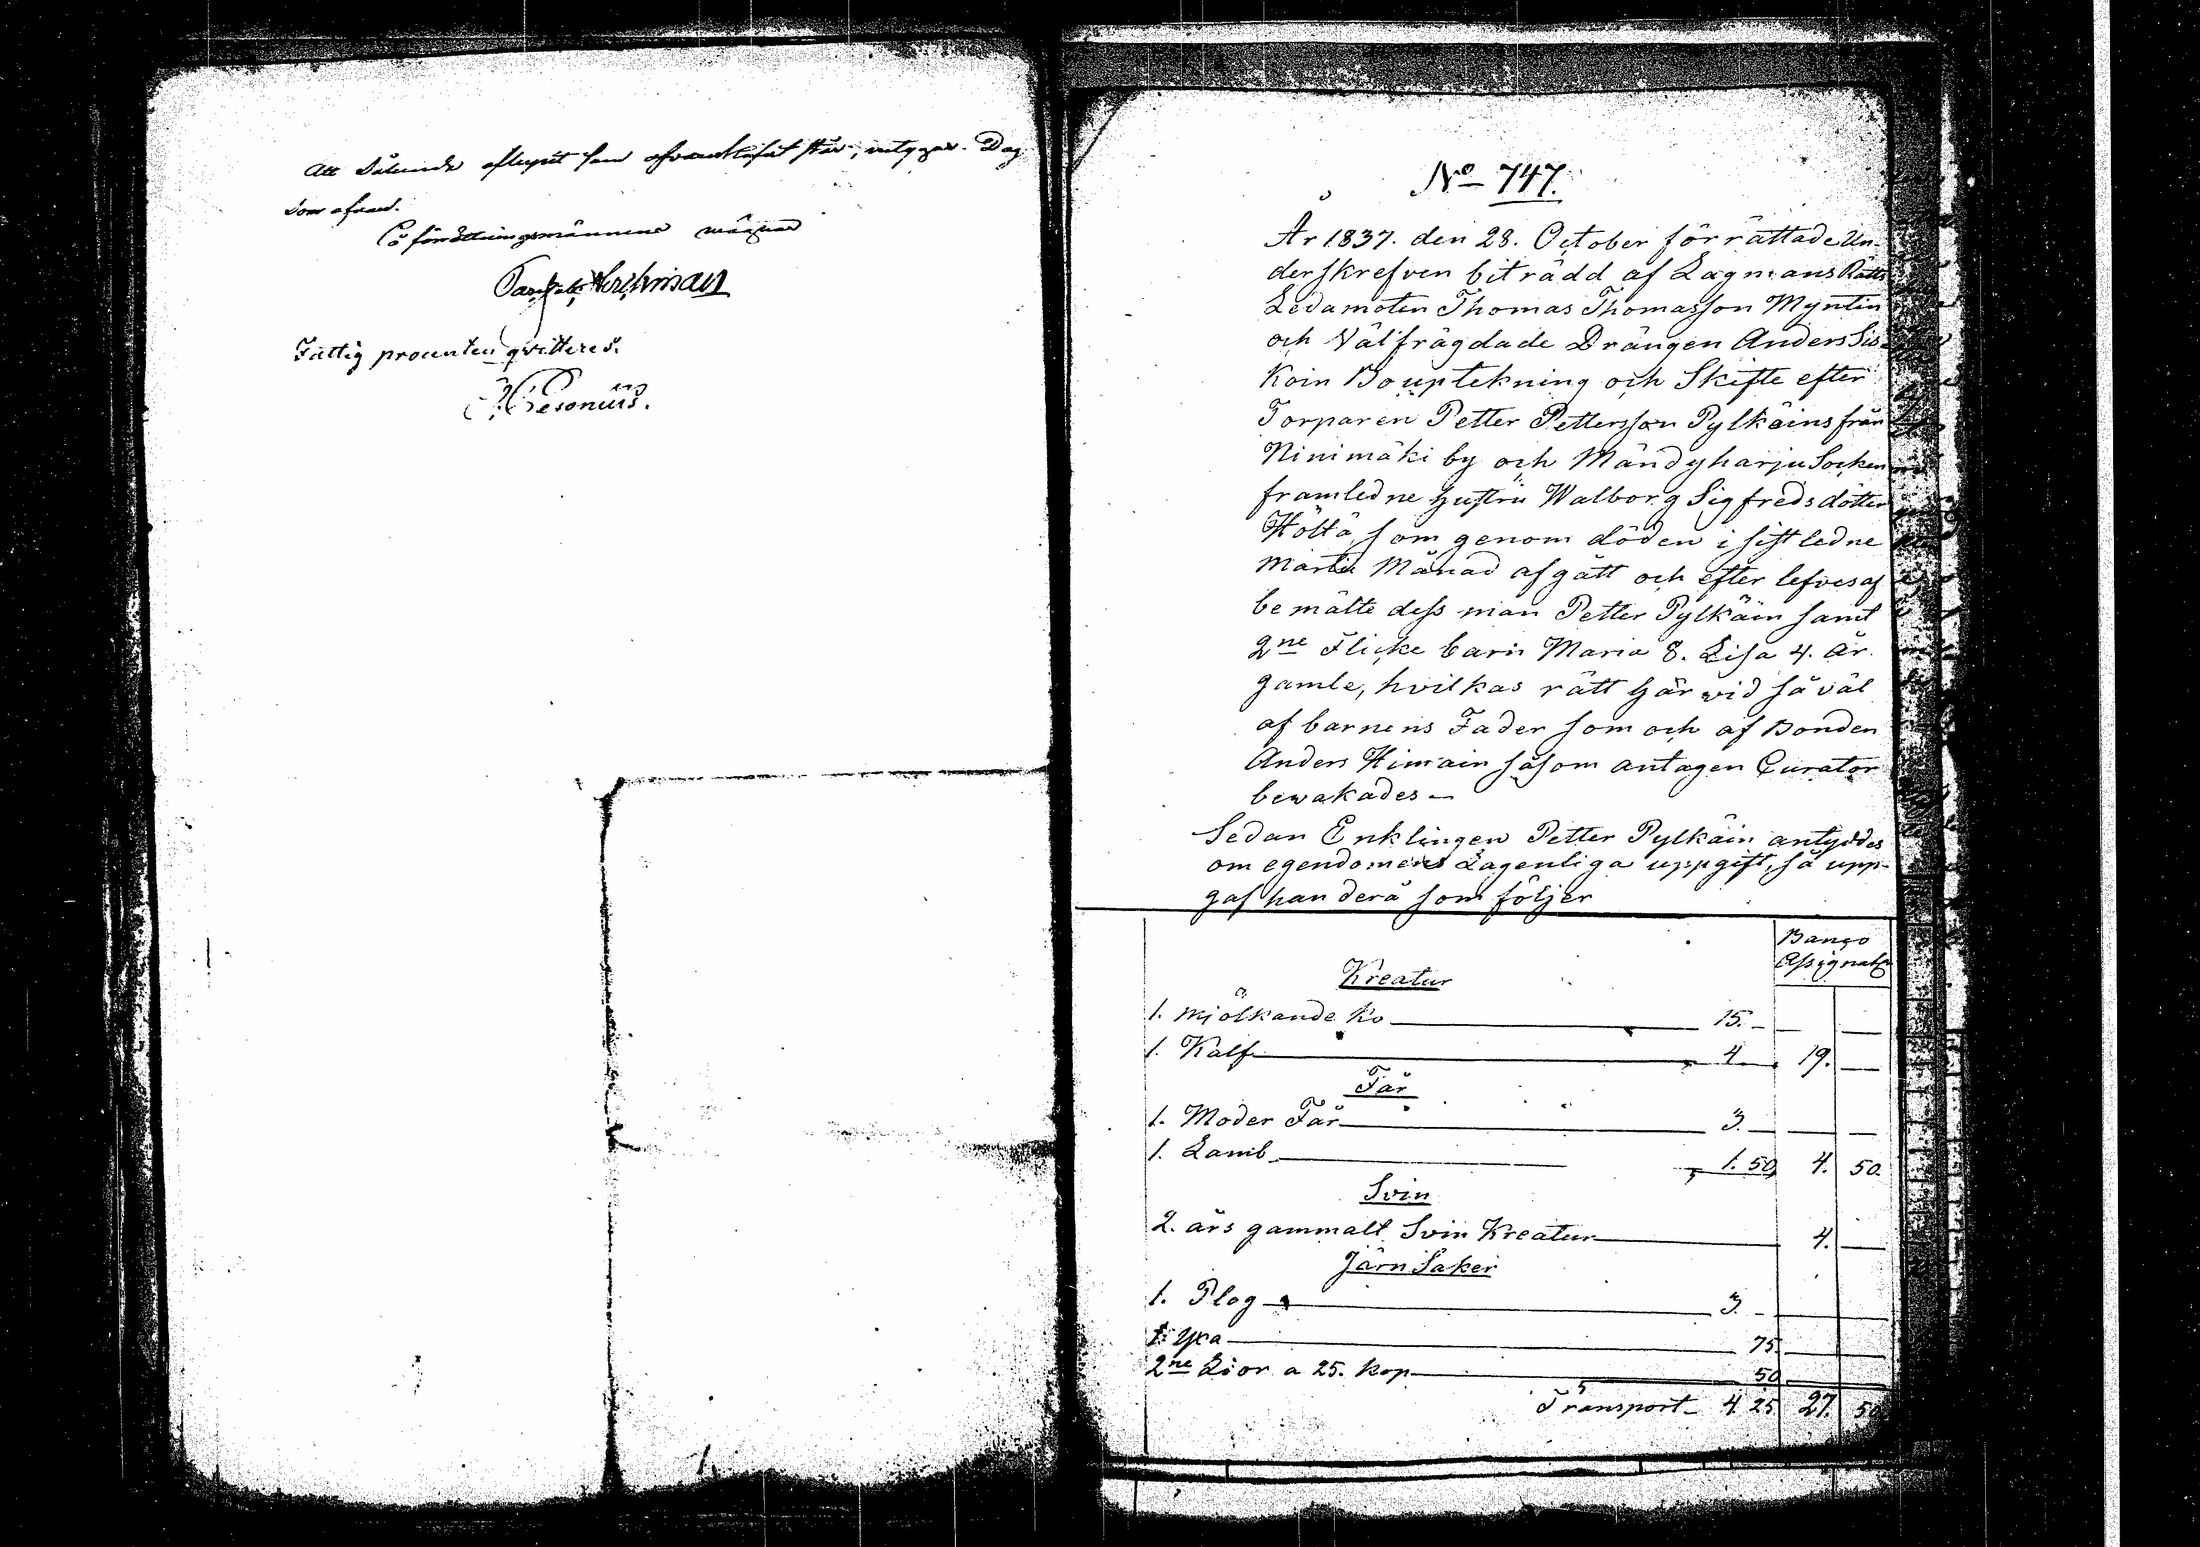 Att sålunda aflupit som ofvanskrifvit står, intygar. Dag
som ofvan.
På förrättningsmännens vägnar
Fattig procenten qvitteres.
No 747.
År 1837. den 28. October förrättade Un-
derskrefven biträdd af Lagmans Rätts
Ledamoten Thomas Thomasson Myntin
och Välfrägdade Drängen Anders Sis-
Koin Bouptekning och Skifte efter
Torparen Petter Pettersson Pylkäins från
Ninimäki by och Mändyharju Socken
framledne Hustru Walborg Sigfredsdotter
Höltä, som genom döden i sistledne
Martii Månad afgått och efter lefvesaf
bemälte dess man Petter Pylkäin samt
2ne Flicke barn Maria 8. Lisa 4. år
gamle, hvilkas rätt härwid så väl
af barnens Fader som och af Bonden
Anders Himain såsom antagen Curator
bewakades —
Sedan Enklingen Petter Pylkäin antyddes
om egendomens Lagenliga uppgift, så upp-
gaf han derå som följer
Banco
Assignat
Kreatur
1. mjölkande Ko — 15. —
1. Kalf — 4 — 19. —
Får
1. Moder Får — 3. —
1. Lamb — 1. 50 4. 50.
Svin
2. års gammalt Svin Kreatur — 4. —
Järn Saker
1. Plog — 3. —
1. Yxa — 75
2ne Lior a 25. kop — 50
Transport — 4. 25 27. 50